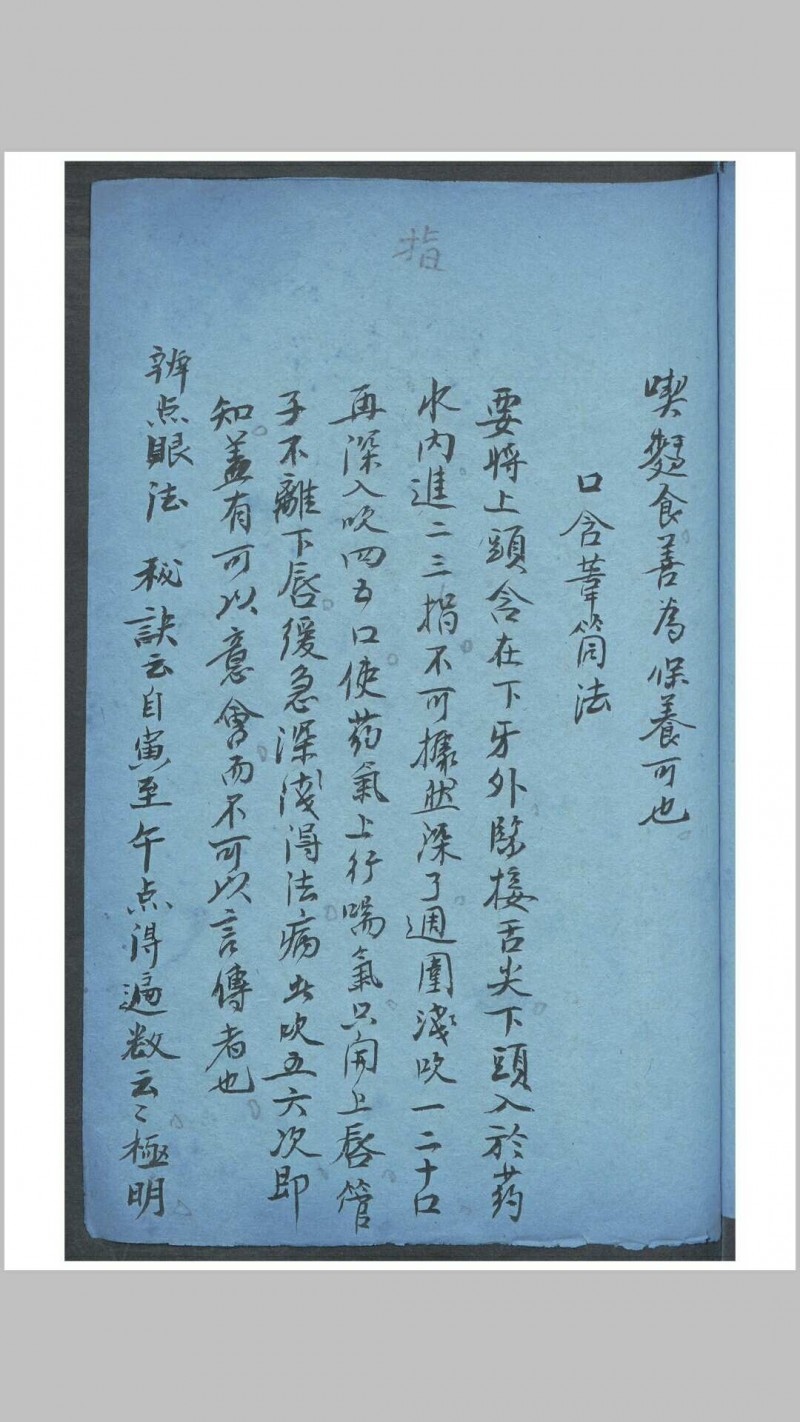 指
喫麵食善為保養可也
口含葦筒法
要將上頭含在下牙外臨接舌尖下頭入於药
水内進二三指不可據然深了週圍淺吹一二十口
再深入吹四五口使药氣上行喘氣只開上唇管
子不離下唇緩急深淺得法病者吹五六次即
知盖有可以意會而不可以言傳者也
辨点眼法 秘訣云自寅至午点得遍数云々極明